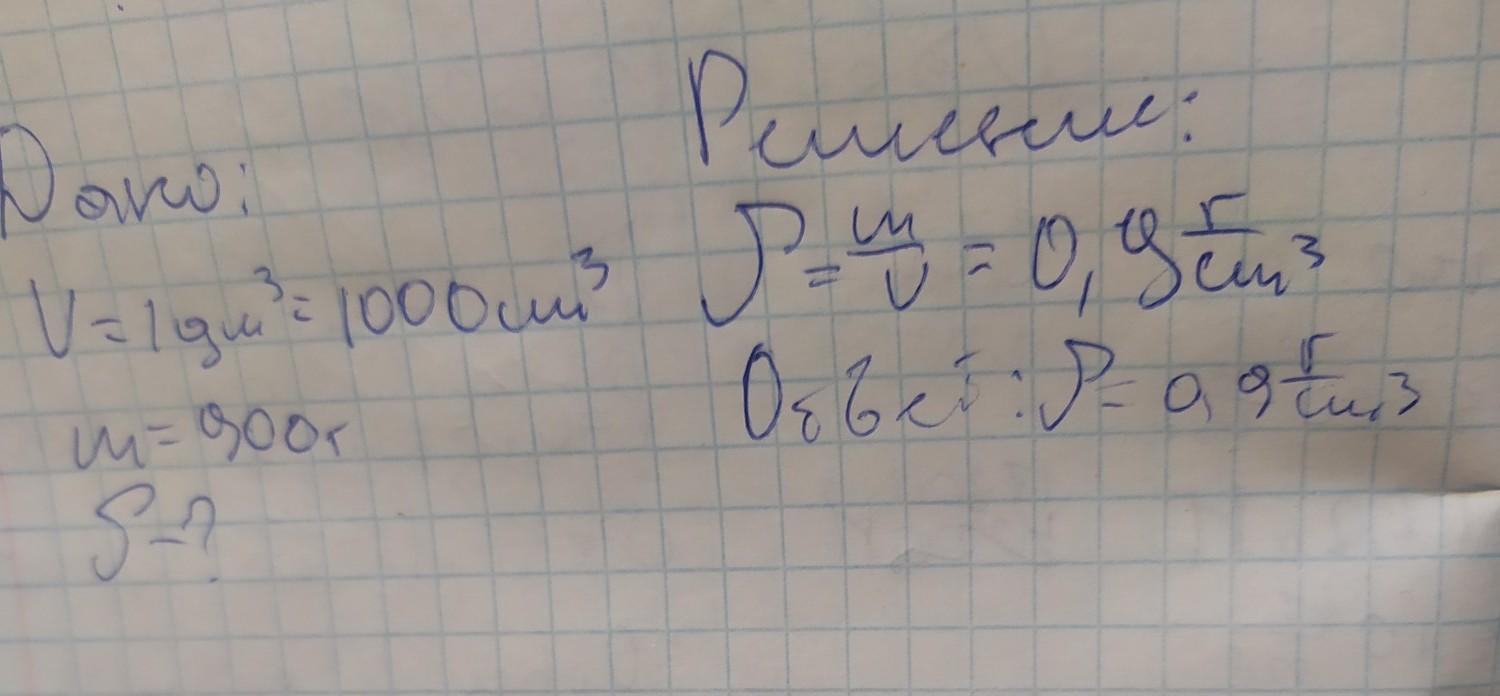 Дано:
V = 1 дм³ = 1000 см³
m = 900 г
ρ - ?
Решение:
ρ = m/V = 0,9 г/см³
Ответ: ρ = 0,9 г/см³